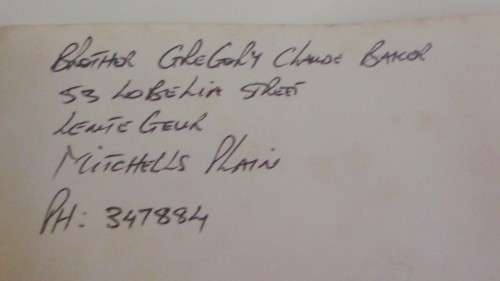 BROTHER GREGORY CLAUDE BAKER
53 LOBELIA STREET
LENTEGEUR
MITCHELLS PLAIN
PH: 347884